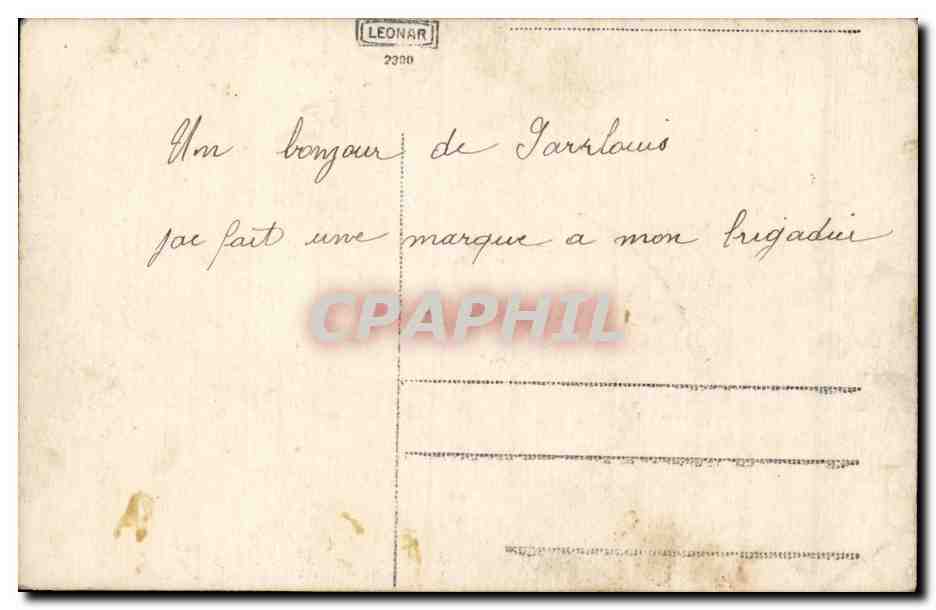 LEONAR
2390
Un bonjour de Sarrlouis
jae fait une marque a mon brigadier
CPAPHIL